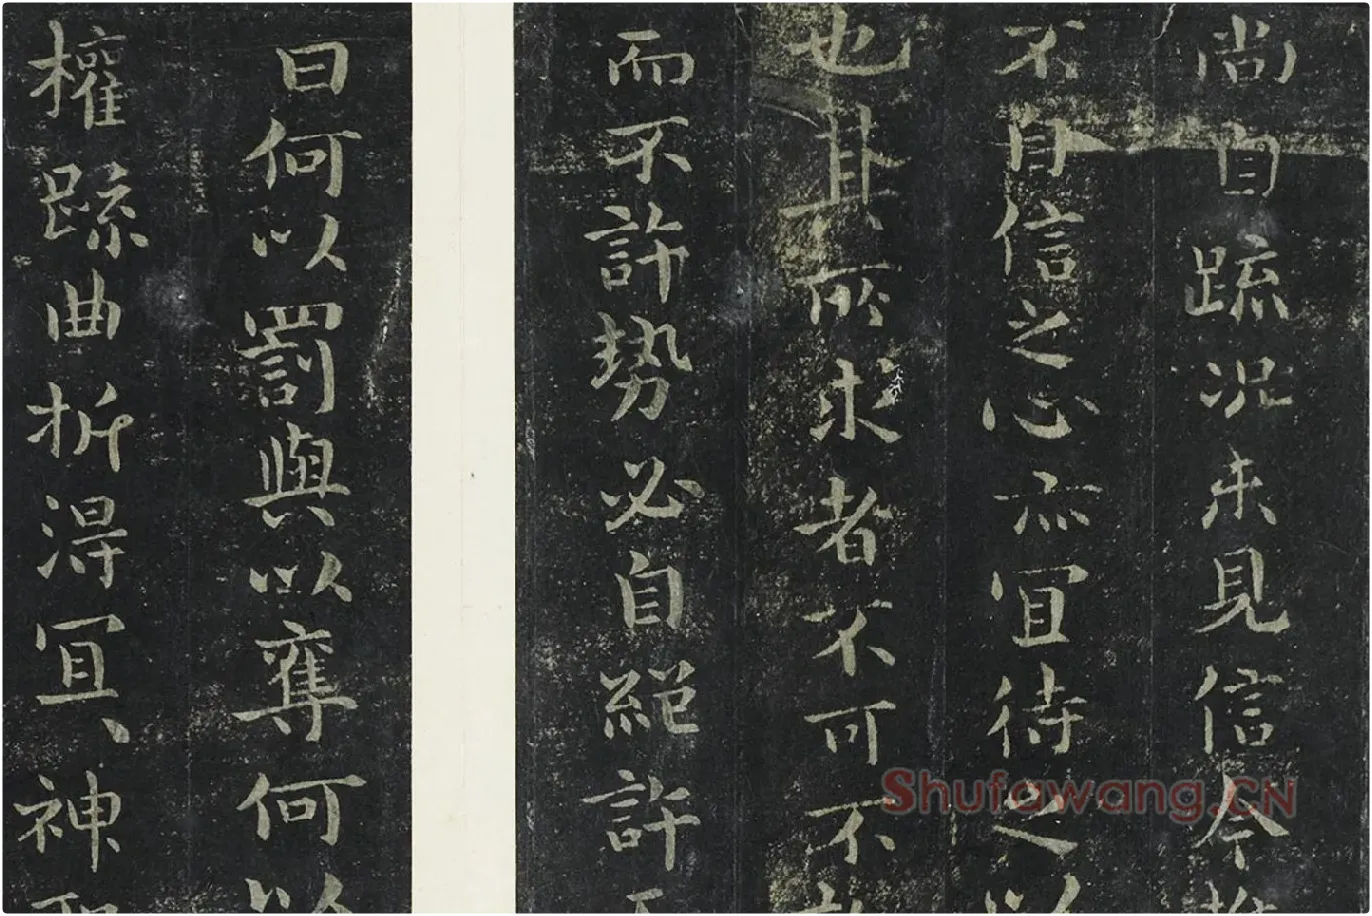 尚自疏況未見信今推
不自信之心亦宜待之以
也其所求者不可不
而不許勢必自絕許而
曰何以罰與以奪何以
權疏曲折得宜〻神聖
Shufawang.CN